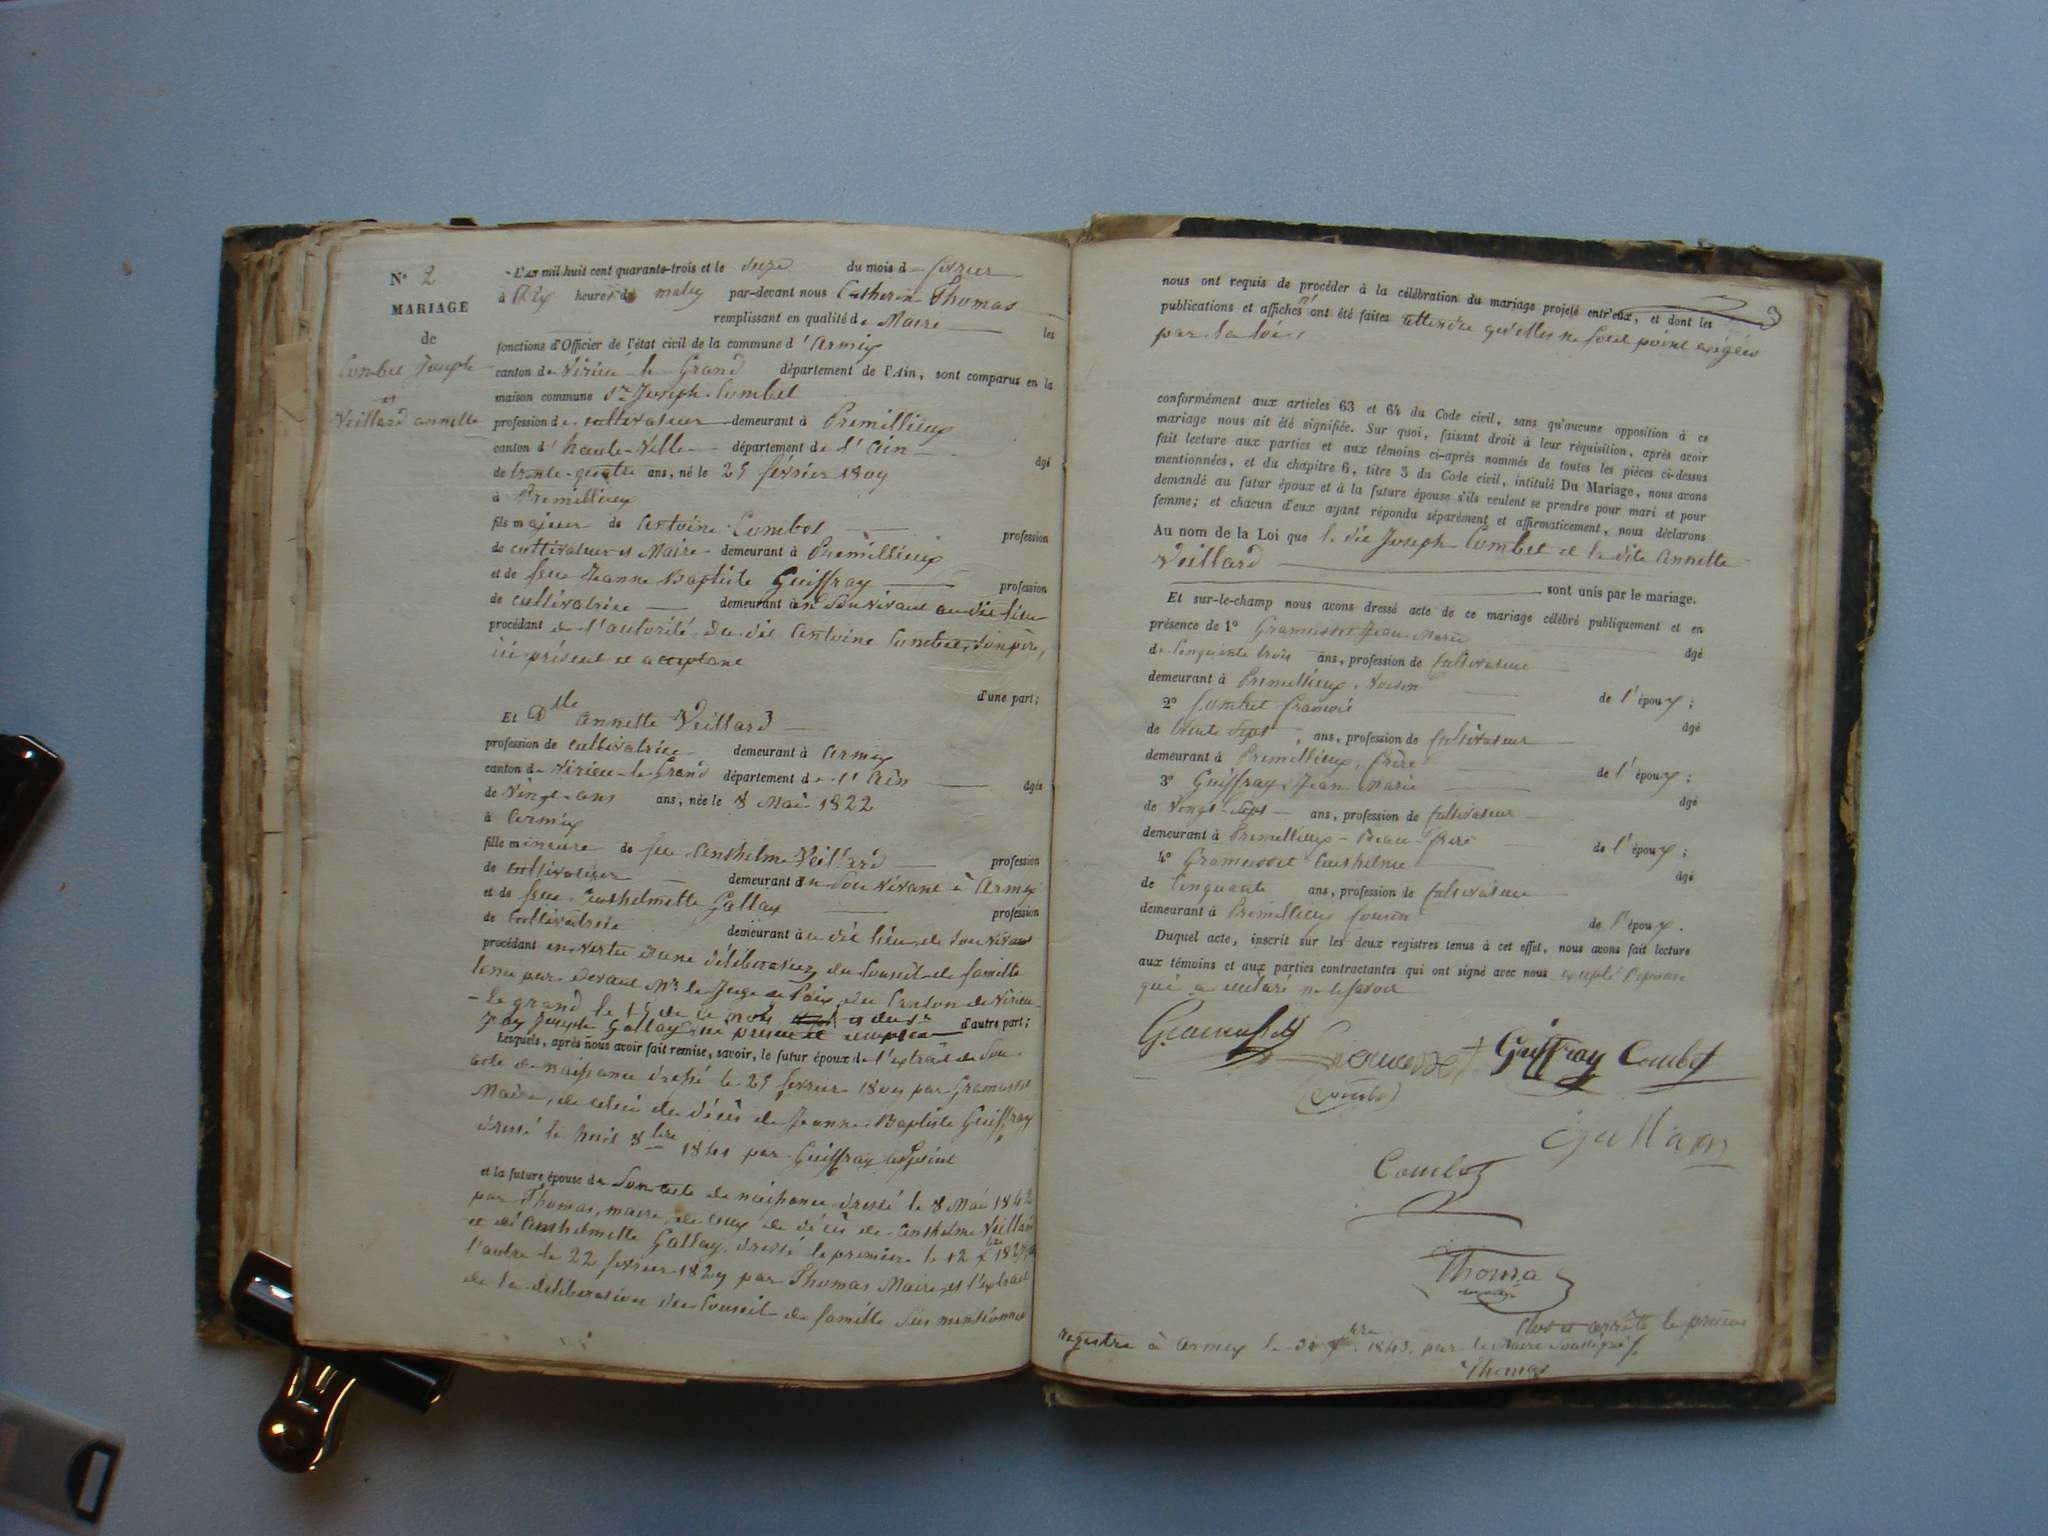 N° 2
MARIAGE
de
Combet Joseph
et
Veillard annette
L'AN mil huit cent quarante-trois et le du mois de février
à Dix heures du matin par-devant nous Anthelme Thomas
remplissant en qualité de Maire les
fonctions d'Officier de l'état civil de la commune d'Armix
canton de Virieu le Grand département de l'Ain, sont comparus en la
maison commune Sr Joseph Combet
profession de cultivateur demeurant à Premillieux
canton d'haute-Ville département de l'Ain âgé
de trente-quatre ans, né le 25 février 1809
à Premillieux
fils majeur de Antoine Combet profession
de cultivateur et Maire demeurant à Premillieux
et de feue Jeanne Baptiste Guiffray profession
de cultivatrice demeurant en son vivant au dit lieu
procédant de l'autorité du dit Antoine Combet, son père,
ici présent et acceptant
d'une part;
Et Dlle annette Veillard
profession de cultivatrice demeurant à Armix
canton de Virieu-le-Grand département de l'Ain âgée
de Vingt ans ans, née le 8 Mai 1822
à Armix
fille mineure de feu Anthelme Veillard profession
de cultivateur demeurant en son vivant à Armix
et de feue Anthelmette Gallay profession
de cultivatrice demeurant au dit lieu, de son vivant
procédant en vertu d'une délibération du Conseil de famille
tenu par devant Mr le Juge de Paix du Canton de Virieu-
-le grand le 15 de ce mois et du Sr
Joseph Gallay ici présent d'autre part;
Lesquels, après nous avoir fait remise, savoir, le futur époux de l'extrait de Son
acte de naissance dressé le 25 février 1809 par Gramusset
Maire, de celui du décès de Jeanne Baptiste Guiffray
dressé le huit 8bre 1841 par Guiffray adjoint
et la future épouse de Son acte de naissance dressé le 8 Mai 1842
par Thomas, maire, de ceux de décès de Anthelme Veillard
et de Anthelmette Gallay, dressé le premier le 12
l'autre le 22 février 1829 par Thomas Maire, et l'extrait
de la délibération du Conseil de famille Sus mentionné
nous ont requis de procéder à la célébration du mariage projeté entr'eux, et dont les
publications et affiches n'ont été faites attendu qu'elles ne sont point exigées
par la loi
conformément aux articles 63 et 64 du Code civil, sans qu'aucune opposition à ce
mariage nous ait été signifiée. Sur quoi, faisant droit à leur réquisition, après avoir
fait lecture aux parties et aux témoins ci-après nommés de toutes les pièces ci-dessus
mentionnées, et du chapitre 6, titre 5 du Code civil, intitulé Du Mariage, nous avons
demandé au futur époux et à la future épouse s'ils veulent se prendre pour mari et pour
femme; et chacun d'eux ayant répondu séparément et affirmativement, nous déclarons
Au nom de la Loi que le dit Joseph Combet et la dite Annette
Veillard
sont unis par le mariage.
Et sur-le-champ nous avons dressé acte de ce mariage célébré publiquement et en
présence de 1° Gramusset Jean Marie âgé
de Cinquante trois ans, profession de Cultivateur
demeurant à Premillieux, Voisin de l'époux;
2° Combet François âgé
de trente Sept, ans, profession de Cultivateur
demeurant à Premillieux, frère de l'époux;
3° Guiffray Jean Marie âgé
de Vingt-Sept ans, profession de Cultivateur
demeurant à Premillieux - Beau-frère de l'époux;
4° Gramusset Anthelme âgé
de Cinquante ans, profession de Cultivateur
demeurant à Premillieux Cousin de l'époux.
Duquel acte, inscrit sur les deux registres tenus à cet effet, nous avons fait lecture
aux témoins et aux parties contractantes qui ont signé avec nous excepté l'épouse
qui a déclaré ne le savoir
Gramusset
Gramusset Guiffray Combet
Combet
Gallay
Combet
Thomas
Clos et arrêté le présent
registre à Armix le 31 1843, par le Maire Soussigné
Thomas